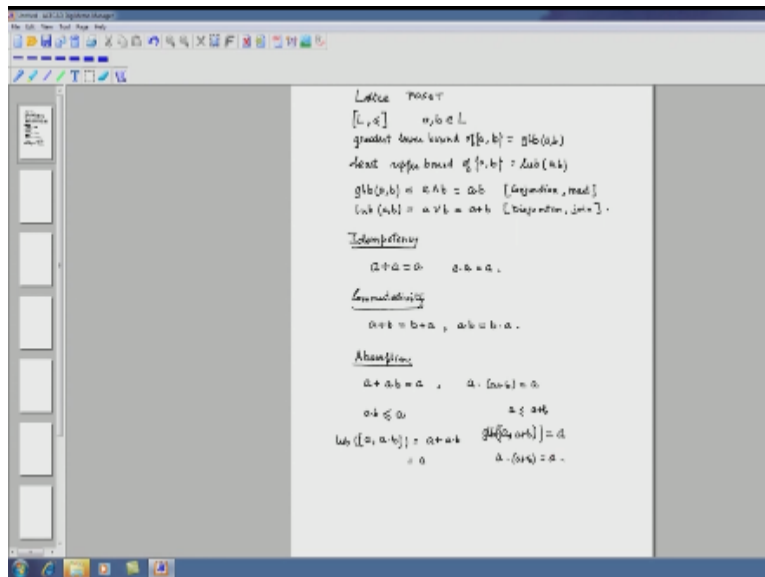 File Edit View Tool Page Help
T
Lattice POSET
[L, ≤] a, b ∈ L
greatest lower bound of {a, b} = glb(a,b)
least upper bound of {a, b} = lub(a,b)
glb(a,b) = a∧b = a·b [conjunction, meet]
lub(a,b) = a∨b = a+b [Disjunction, join].
Idempotency
a+a = a a·a = a.
Commutativity
a+b = b+a, a·b = b·a.
Absorption
a + a·b = a, a·(a+b) = a
a·b ≤ a a ≤ a+b
lub({a, a·b}) = a+a·b glb({a, a+b}) = a
= a a·(a+b) = a.